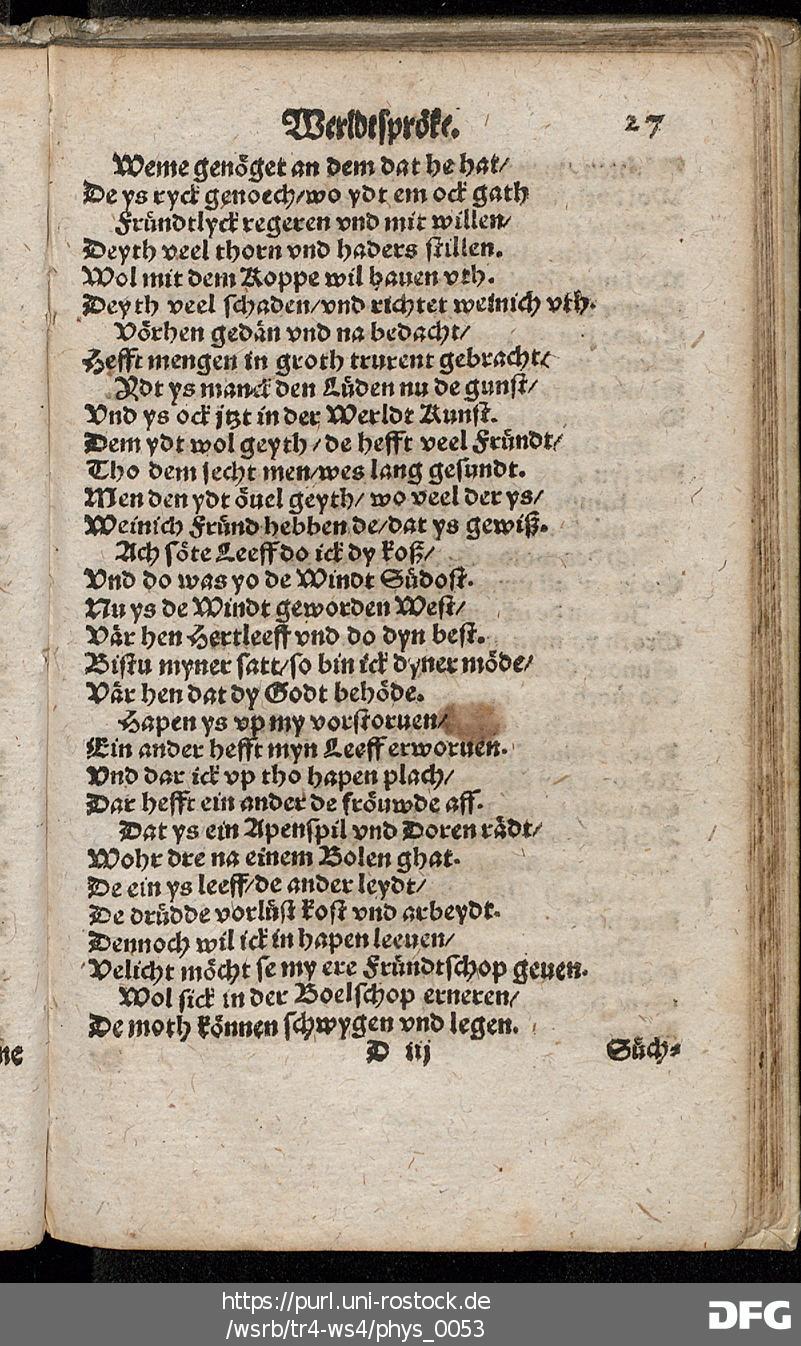 Werldtspröke. 27
Weme genöget an dem dat he hat/
De ys ryck genoech/wo ydt em ock gath
Fründtlyck regeren vnd mit willen/
Deyth veel thorn vnd haders stillen.
Wol mit dem Koppe wil hauen vth.
Deyth veel schaden/vnd richtet weinich vth.
Vörhen gedän vnd na bedacht/
Hefft mengen in groth trurent gebracht/
Ydt ys manck den Lüden nu de gunst/
Vnd ys ock jtzt in der Werldt Kunst.
Dem ydt wol geyth/de hefft veel Fründt/
Tho dem secht men/wes lang gesundt.
Men den ydt öuel geyth/ wo veel der ys/
Weinich Fründ hebben de/dat ys gewiß.
Ach söte Leeff do ick dy koß/
Vnd do was yo de Windt Südost.
Nu ys de Windt geworden West/
Vär hen Hertleeff vnd do dyn best.
Bistu myner satt/so bin ick dyner möde/
Vär hen dat dy Godt behöde.
Hapen ys vp my vorstoruen/
Ein ander hefft myn Leeff erworuen.
Vnd dar ick vp tho hapen plach/
Dar hefft ein ander de fröuwde aff.
Dat ys ein Apenspil vnd Doren rädt/
Wohr dre na einem Bolen ghat.
De ein ys leeff/de ander leydt/
De drüdde vorlüst kost vnd arbeydt.
Dennoch wil ick in hapen leeuen/
Velicht möcht se my ere Fründtschop geuen.
Wol sick in der Boelschop erneren/
De moth können schwygen vnd legen.
D iij Süch-
ne
https://purl.uni-rostock.de
/wsrb/tr4-ws4/phys_0053
DFG